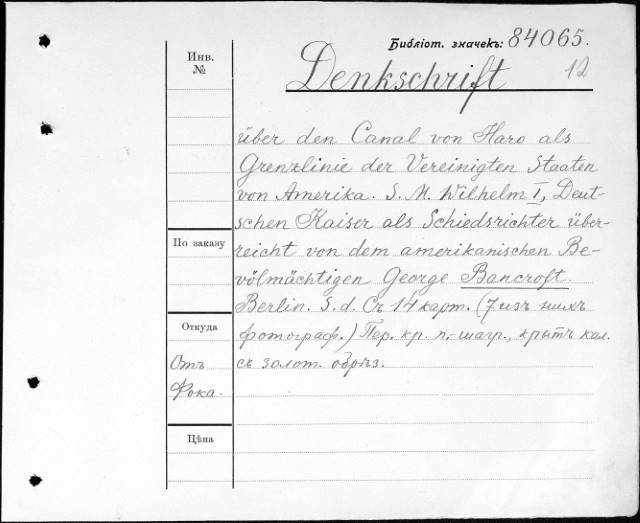 Библіот. значекъ: 84065.
12
Инв.
№
Denkschrift
über den Canal von Haro als
Grenzlinie der Vereinigten Staaten
von Amerika. S. M. Wilhelm I, Deut-
schen Kaiser als Schiedsrichter über-
По заказу
reicht von dem amerikanischen Be-
völmächtigen George Bancroft.
Berlin. S. d. Съ 14 карт. (7 изъ нихъ
Откуда
фотограф.) Пер. кр. п.-шагр., крытъ кал.
Отъ
съ золот. обрѣз.
Фока.
Цѣна